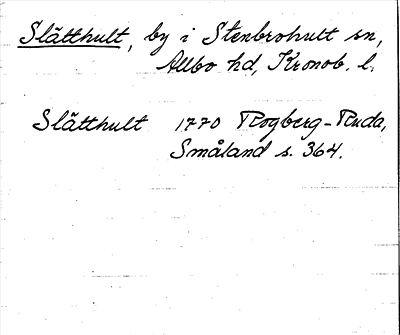 Slätthult, by i Stenbrohult sn,
Allbo hd, Kronob. l.
Slätthult 1770 Rogberg-Ruda,
Småland s. 364.